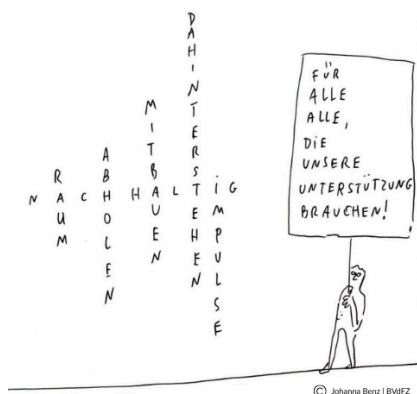 NACHHALTiG
RAUM
ABHOLEN
MITBAUEN
DAHINTERSTEHEN
iMPULSE
FÜR
ALLE
ALLE,
DiE
UNSERE
UNTERSTÜTZUNG
BRAUCHEN!
© Johanna Benz | BVdFZ